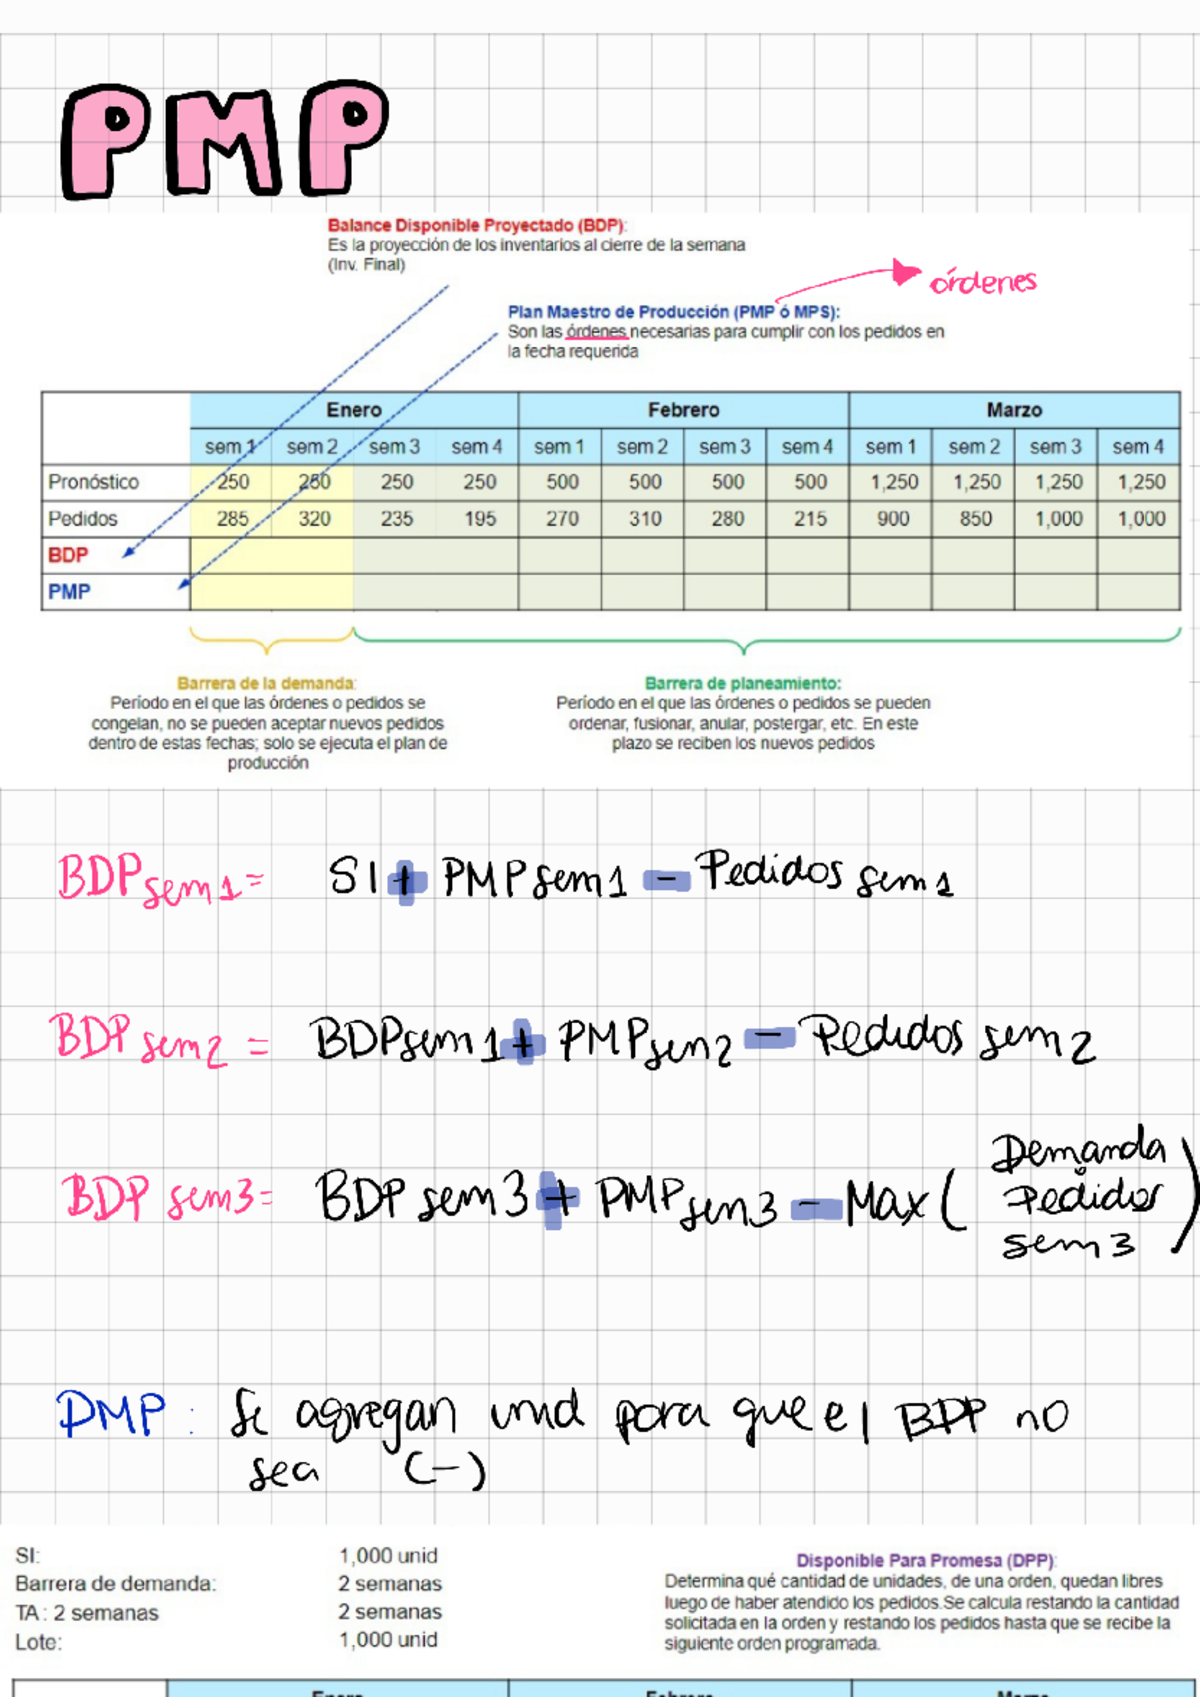 PMP
Balance Disponible Proyectado (BDP):
Es la proyección de los inventarios al cierre de la semana
(Inv. Final)
órdenes
Plan Maestro de Producción (PMP ó MPS):
Son las órdenes necesarias para cumplir con los pedidos en
la fecha requerida
Enero Febrero Marzo
sem 1 sem 2 sem 3 sem 4 sem 1 sem 2 sem 3 sem 4 sem 1 sem 2 sem 3 sem 4
Pronóstico 250 250 250 250 500 500 500 500 1,250 1,250 1,250 1,250
Pedidos 285 320 235 195 270 310 280 215 900 850 1,000 1,000
BDP
PMP
Barrera de la demanda:
Período en el que las órdenes o pedidos se
congelan, no se pueden aceptar nuevos pedidos
dentro de estas fechas; solo se ejecuta el plan de
producción
Barrera de planeamiento:
Período en el que las órdenes o pedidos se pueden
ordenar, fusionar, anular, postergar, etc. En este
plazo se reciben los nuevos pedidos
BDP sem1 = SI + PMP sem1 - Pedidos sem1
BDP sem2 = BDP sem1 + PMP sem2 - Pedidos sem2
BDP sem3 = BDP sem3 + PMP sem3 - Max ( Demanda
Pedidos
sem 3 )
PMP : Se agregan unid para que el BDP no
sea (-)
SI: 1,000 unid
Barrera de demanda: 2 semanas
TA : 2 semanas 2 semanas
Lote: 1,000 unid
Disponible Para Promesa (DPP):
Determina qué cantidad de unidades, de una orden, quedan libres
luego de haber atendido los pedidos.Se calcula restando la cantidad
solicitada en la orden y restando los pedidos hasta que se recibe la
siguiente orden programada.
Enero Febrero Marzo